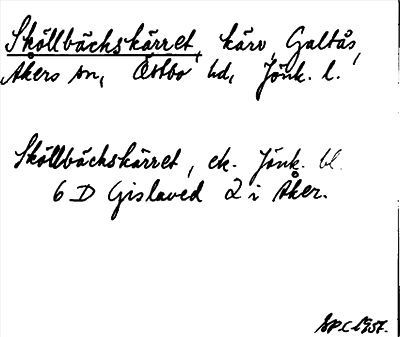 Sköllbäckskärret, kärr, Galtås,
Åkers sn, Östbo hd, Jönk. l.
Sköllbäckskärret, ek. Jönk. bl.
6 D Gislaved 2 i Åker.
1957.